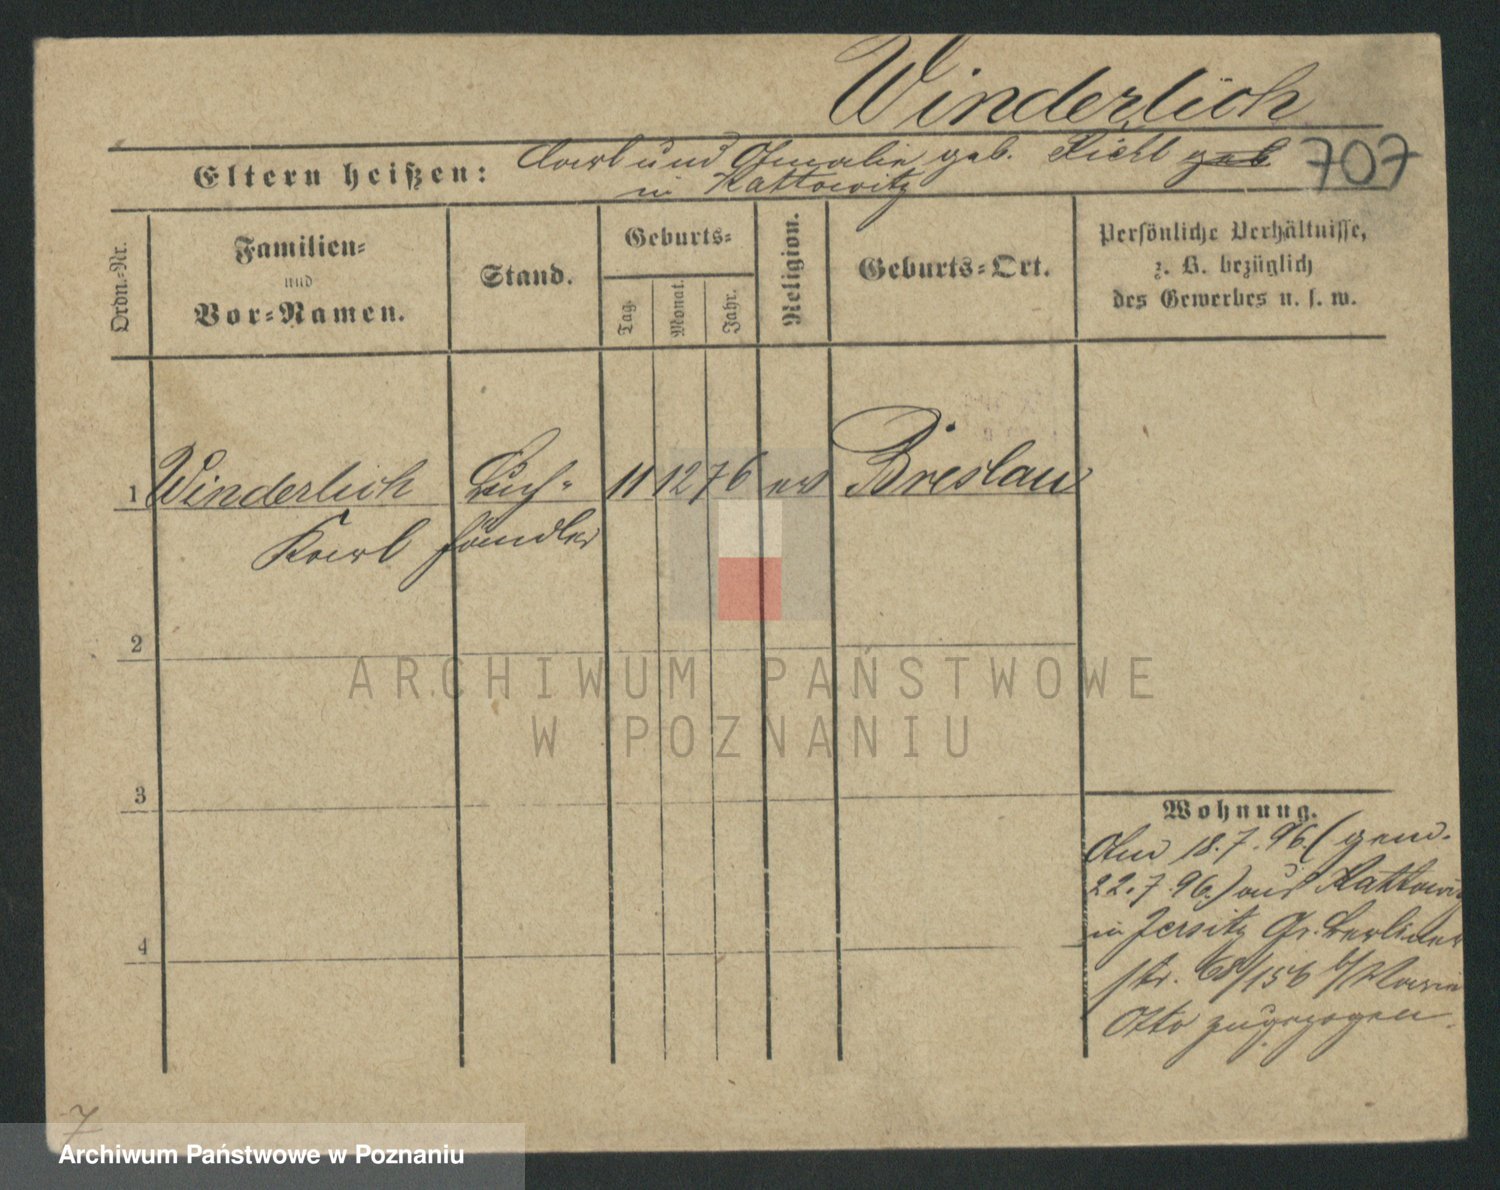 Winderlich
Eltern heißen: Carl und Amalie geb. Richt geb 707
in Kattowitz
Ordn.-Nr.
Familien-
und
Vor-Namen.
Stand.
Geburts-
Tag.
Monat.
Jahr.
Religion.
Geburts-Ort.
Persönliche Verhältnisse,
z. B. bezüglich
des Gewerbes u. s. w.
1 Winderlich Buch- 11 12 76 ev Breslau
Karl händler
2
3
4
Wohnung.
Am 18.7.96 (gem.
22.7.96.) aus Kattowitz
in Jersitz Gr. Berliner
str. 68/156 b/ Marie
Otto zugezogen.
7
ARCHIWUM PAŃSTWOWE
W POZNANIU
Archiwum Państwowe w Poznaniu